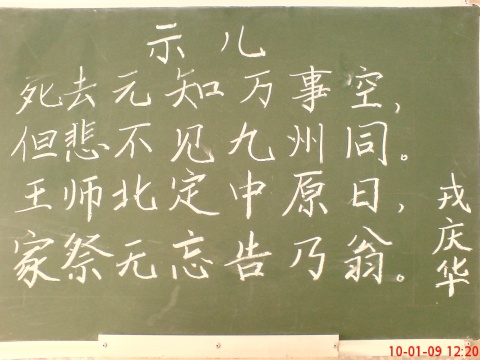 示儿
死去元知万事空，
但悲不见九州同。
王师北定中原日，
家祭无忘告乃翁。
戎庆华
10-01-09 12:20